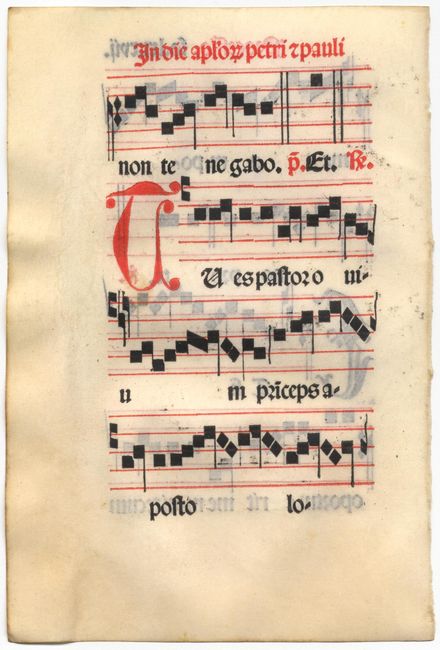 In die apl'oꝝ petri ⁊ pauli
non te ne gabo. p̃. Et. ℞.
T U es pastor o ui-
u m prĩceps a-
posto lo-